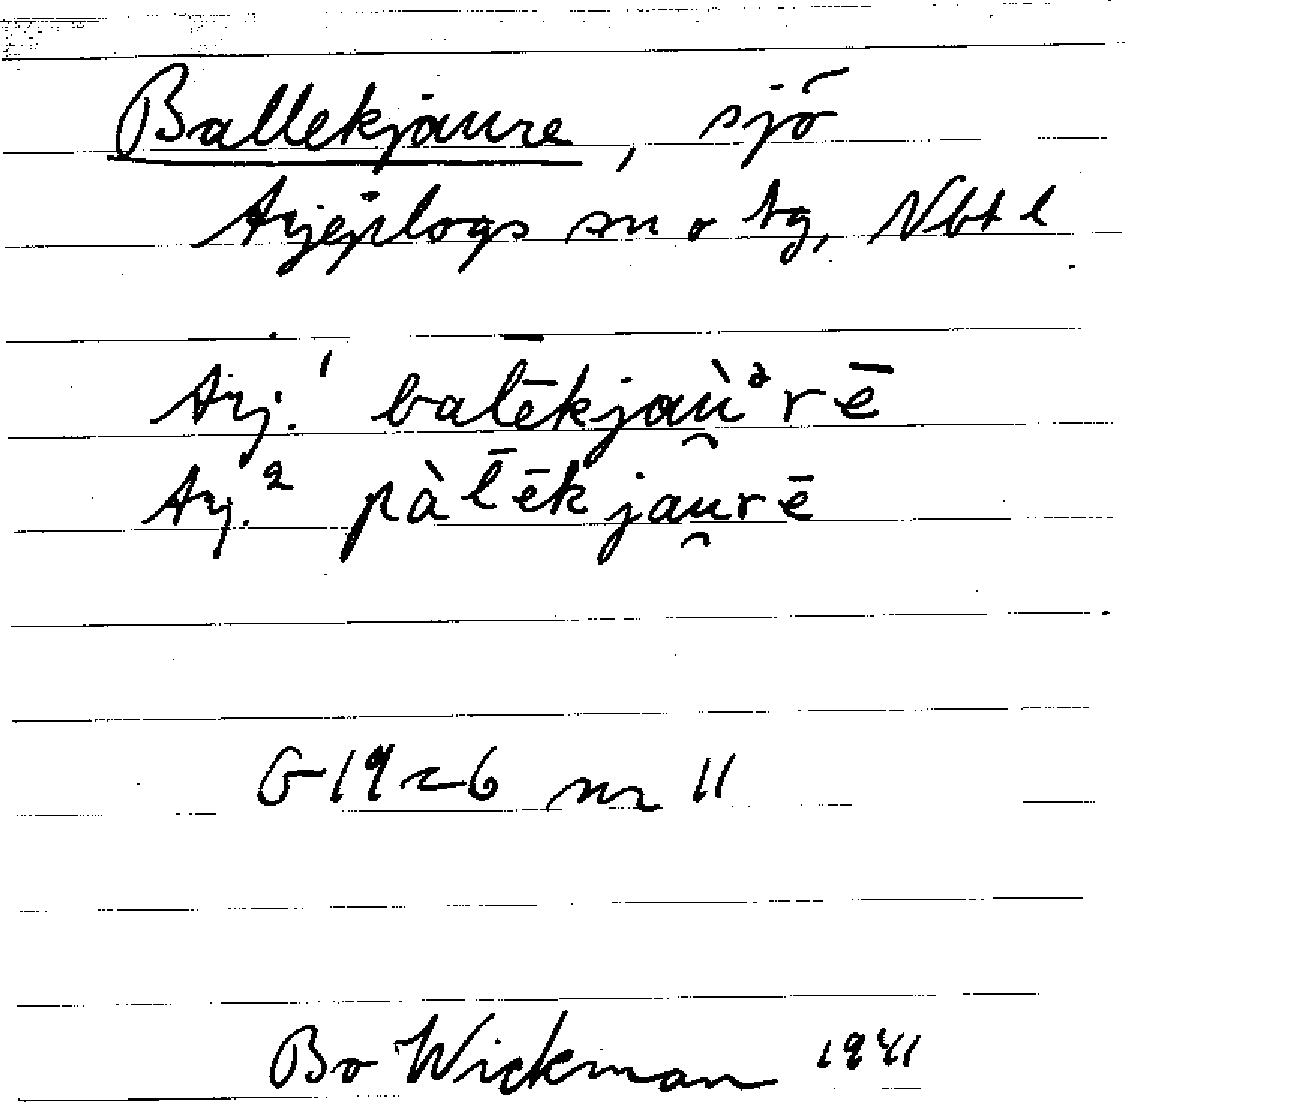 Ballekjaure, sjö
Arjeplogs sn o tg, Nbt l
Arj.¹ balēkjaù̯ᵊrē
Arj.² pàl̄ēkjau̯rē
G 19 c 6 nr 11
Bo Wickman 1941